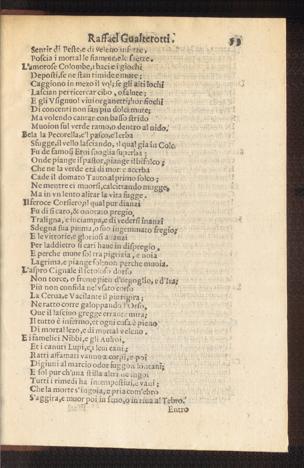 Raffael Gualterotti. 53
Sentir di Peste, e di veleno infette,
Poscia i mortal le fiamme, e le saette.
L'amorose Colombe, i baci e i giochi
Deposti, se ne stan timide e mute;
Caggiono in mezo il vol; se gli alti lochi
Lascian per ricercar cibo, o salute;
E gli Vsignuoli vini organetti, hor fiochi
Di concenti non san più dolci mute;
Ma volendo cantar con basso strido
Muoion sul verde ramo, o dentro al nido.
Bela la Pecorella, e'l pascer l'erba
Sfugge, il vello lasciando, il qual già in Colc
Fu de famosi Eroi spoglia superba;
Onde piange il pastor, piange il bifolco;
Che ne la verde età di morte acerba
Cade il domato Tauro al primo solco;
Ne mentre ei muor si, calcitrando mugge,
Ma in vn lento alitar la vita fugge.
Il feroce Corsiero, il qual pur dianzi
Fu di sì raro, & onorato pregio,
Traligna, e inciampa, e di vedersi inanzi
Sdegna sua piuma, o suo ingemmato fregio;
E le vittorie, e gloriosi auanzi
Per l'addietro sì cari haue in dispregio,
E perche muore sol tra pigrizia, e noia
Lagrima, e piange sol non perche muoia.
L'aspro Cignale il setoloso dorso
Non torce, o freme pien d'orgoglio, e d'Ira;
Più non confida nel vsato corso
La Cerua, e Vacilante il piè rigira;
Ne ratto corre galoppando l'Orso,
Que il lacsino gregge errante mira;
Il tutto è infermo, et ogni cosa è pieno
Di mortal lezo, e di mortal veleno.
E i famelici Nibbi, e gli Auoltoi,
Et i canuti Lupi, e i leui cani;
Ratti affamati vanno a corpi, e poi
Digiuni al marcio odor fuggon lontani;
E sol pur ch'una stilla altri ne ingoi
Tutti i rimedi ha intempestiui, e vani;
Che la morte s'ingoia, e pria com'ebro
S'aggira, e muor poi in seno, o in riua al Tebro.
Entro